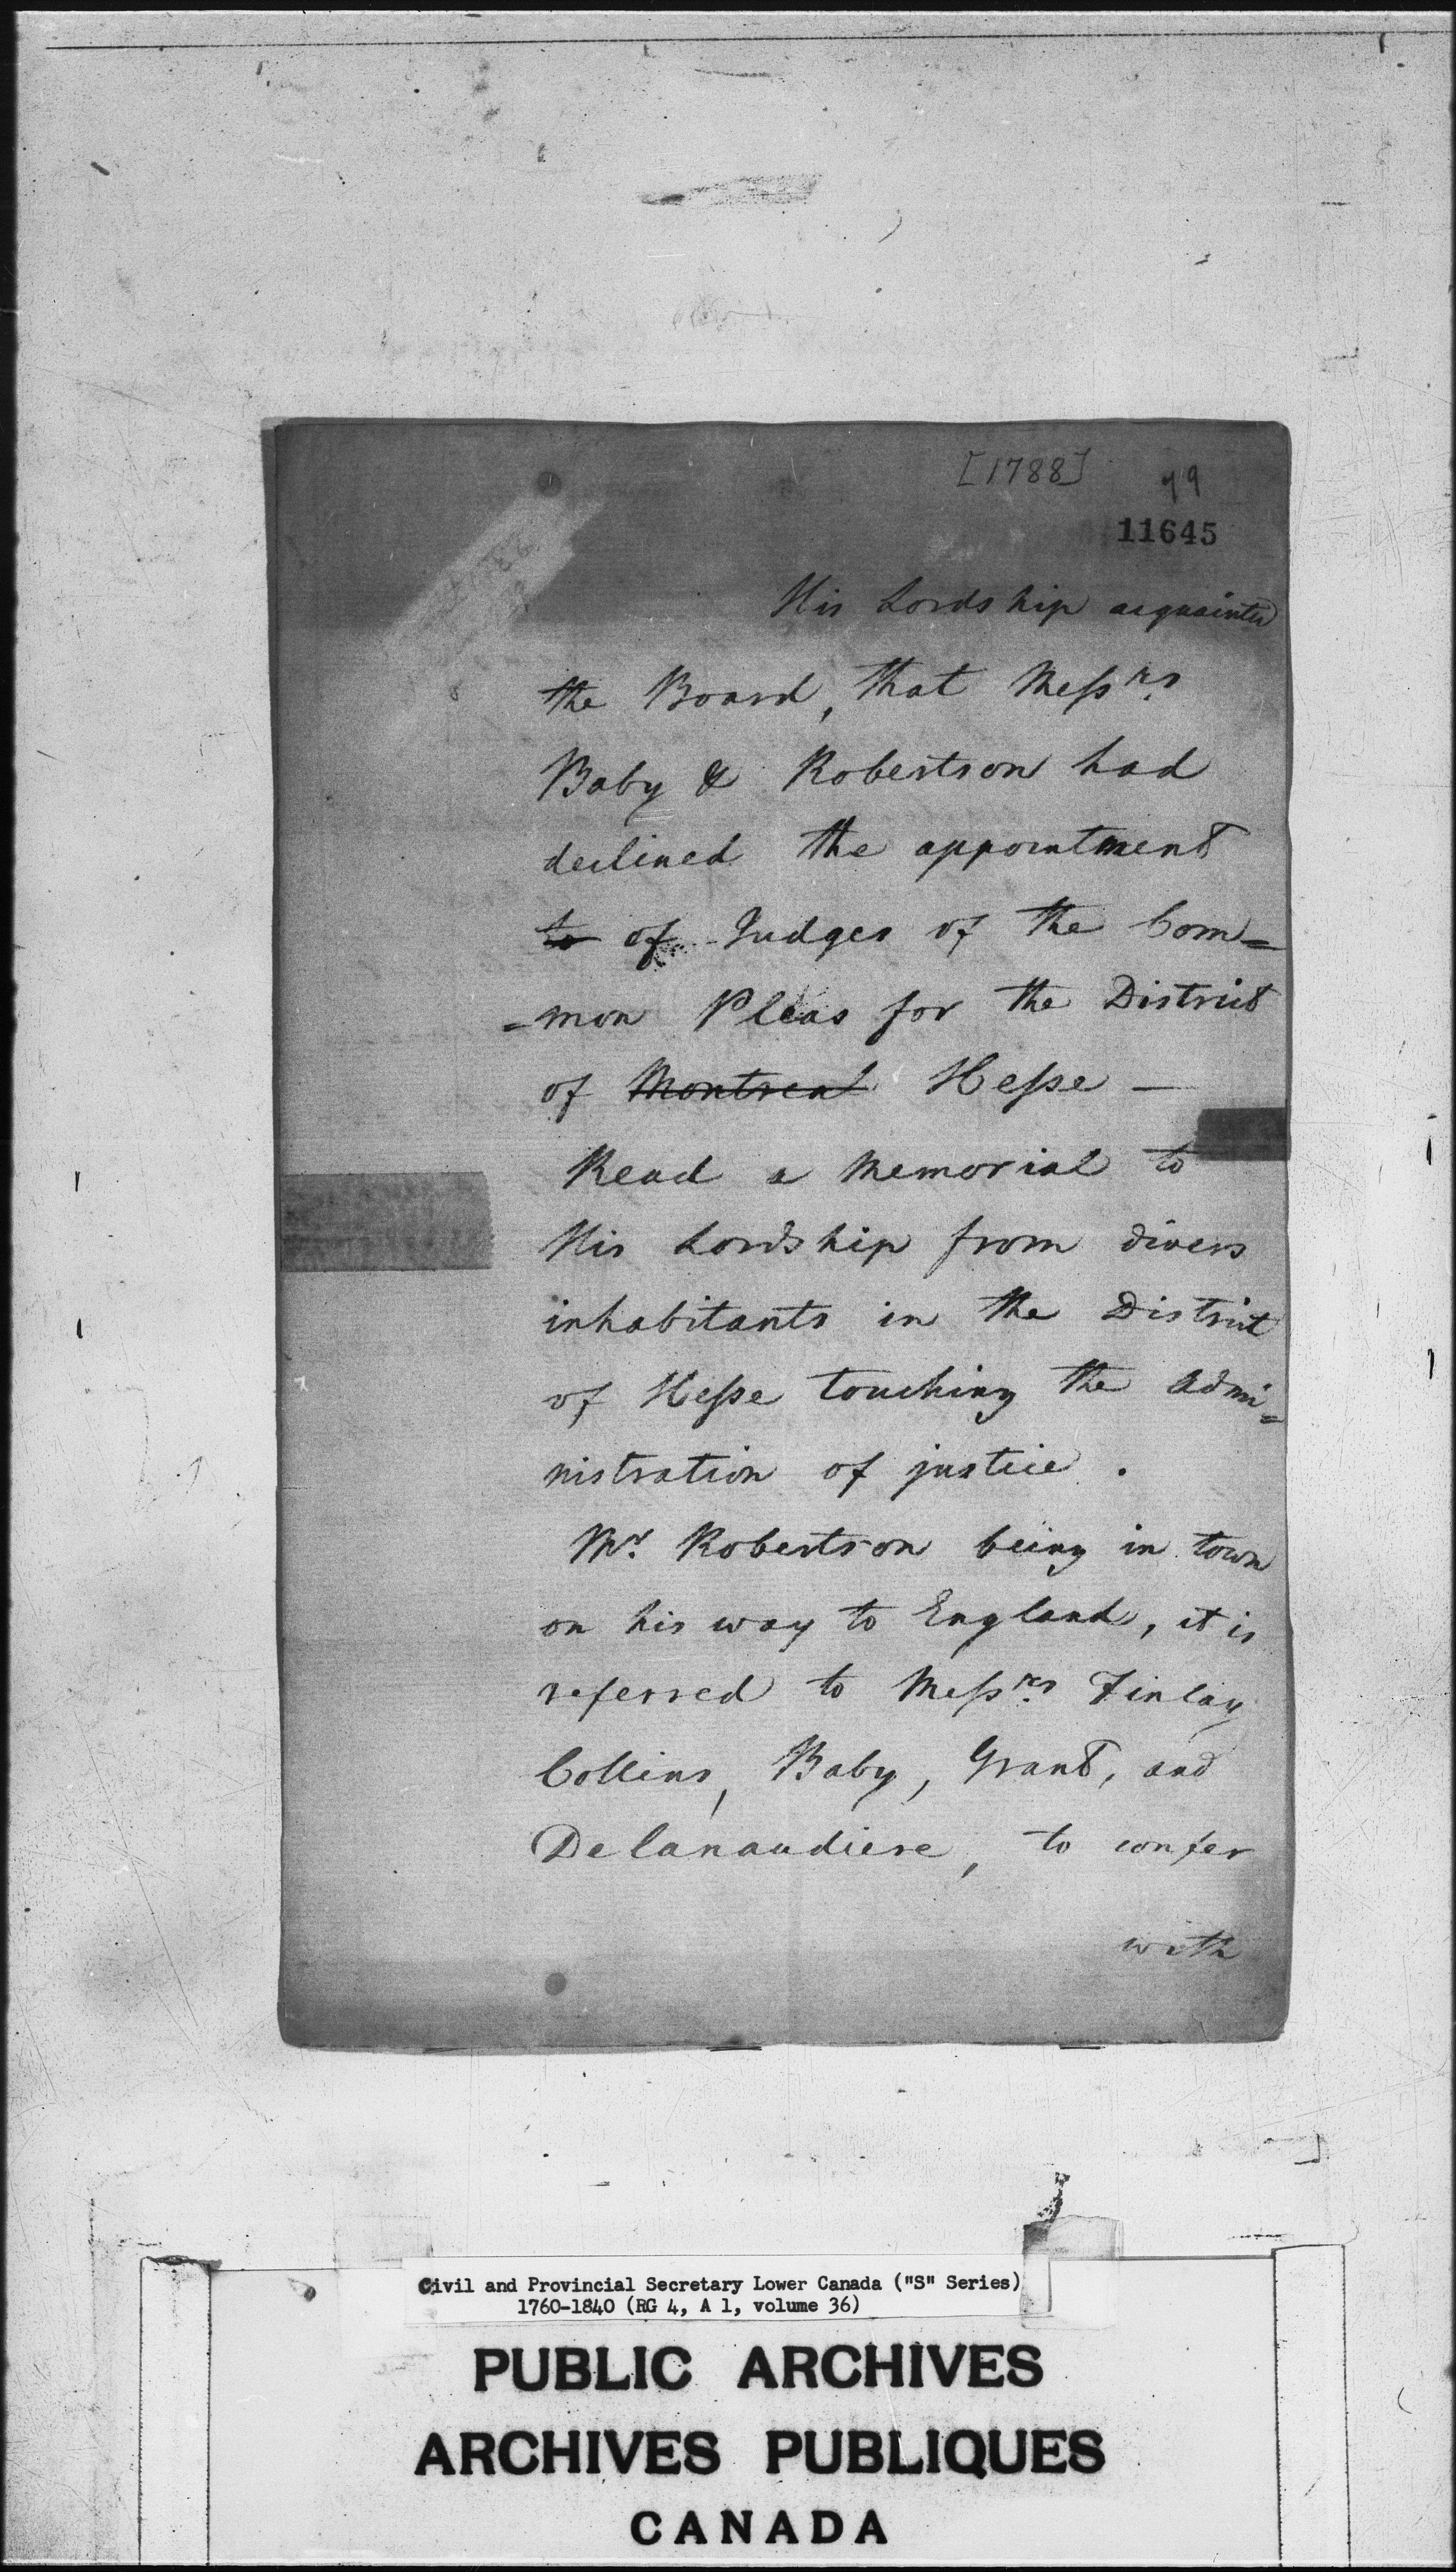 [1788]
79
11645
His Lordship acquainted
the Board, that Messrs
Baby & Robertson had
declined the appointment
to of Judges of the Com=
=mon Pleas for the District
of Montreal Hesse —
Read a Memorial to
His Lordship from divers
inhabitants in the District
of Hesse touching the Admi=
nistration of justice .
Mr. Robertson being in town
on his way to England, it is
referred to Messrs Finlay
Collins, Baby, Grant, and
Delanaudiere, to confer
with
Civil and Provincial Secretary Lower Canada ("S" Series)
1760-1840 (RG 4, A 1, volume 36)
PUBLIC ARCHIVES
ARCHIVES PUBLIQUES
CANADA